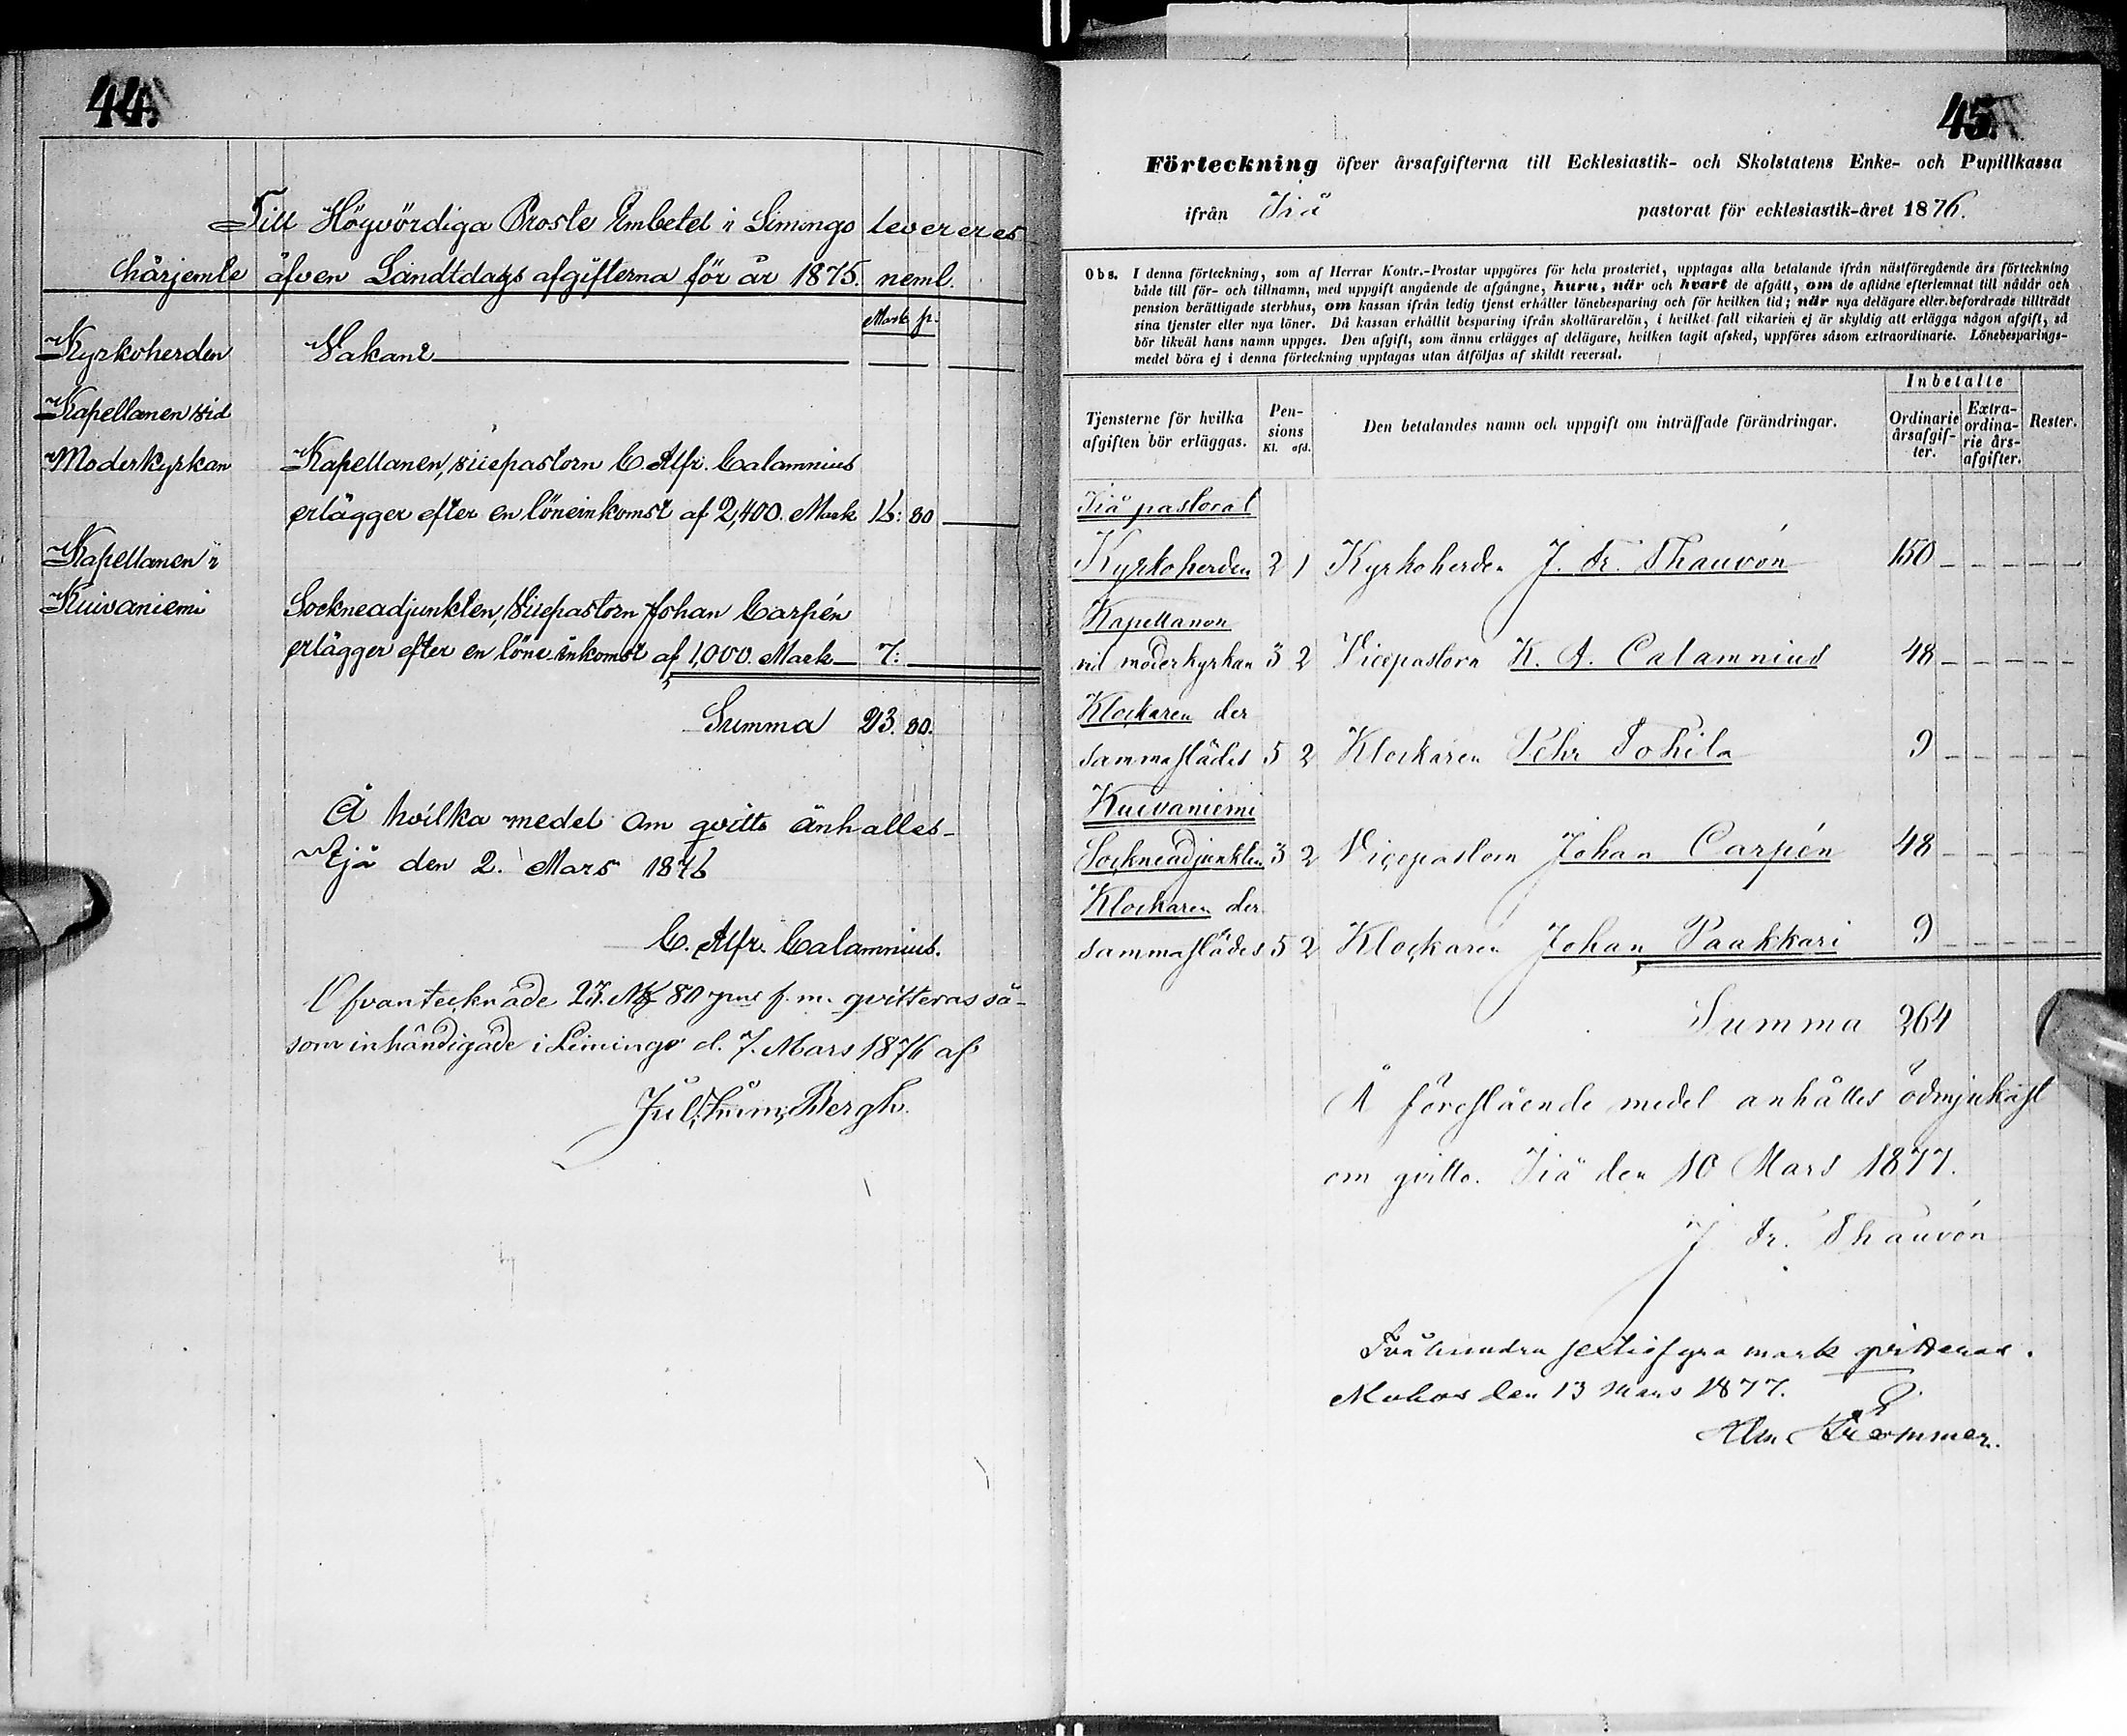 44.
Till Högvördiga Prosle Embetet i Limingo levereres
härjemte äfven Landtdags afgifterna för år 1875. neml.
Mark p.
Kyrkoherden Vakant
Kapellanen vid
Moderkyrkan Kapellanen, vicepastorn C. Alfr. Calamnius
erlägger efter en löneinkomst af 2,400. Mark 16: 80
Kapellanen i
Kuivaniemi Sockneadjunkten, Vicepastorn Johan Carpén
erlägger efter en löne inkomst af 1,000. Mark 7:
Summa 23. 80.
Å hvilka medel om qvitto anhalles
Ijå den 2. Mars 1876
C. Alfr. Calamnius.
Ofvantecknade 23. Mk 80 pni f. m. qvitteras så-
som inhändigade i Limingo d. 7. Mars 1876 af
Jul. Imm. Bergh.
45.
Förteckning öfver årsafgifterna till Ecklesiastik- och Skolstatens Enke- och Pupillkassa
ifrån Iiå pastorat för ecklesiastik-året 1876.
Obs. I denna förteckning, som af Herrar Kontr.-Prostar uppgöres för hela prosteriet, upptagas alla betalande ifrån nästföregående års förteckning
både till för- och tillnamn, med uppgift angående de afgångne, huru, när och hvart de afgått, om de aflidne efterlemnat till nådår och
pension berättigade sterbhus, om kassan ifrån ledig tjenst erhåller lönebesparing och för hvilken tid; när nya delägare eller befordrade tillträdt
sina tjenster eller nya löner. Då kassan erhållit besparing ifrån skollärarelön, i hvilket fall vikarien ej är skyldig att erlägga någon afgift, så
bör likväl hans namn uppges. Den afgift, som ännu erlägges af delägare, hvilken tagit afsked, uppföres såsom extraordinarie. Lönebesparings-
medel böra ej i denna förteckning upptagas utan åtföljas af skildt reversal.
Tjensterne för hvilka afgiften bör erläggas. Pensions Kl. afd. Den betalandes namn och uppgift om inträffade förändringar. Inbetalte Ordinarie årsafgifter. Extraordinarie årsafgifter. Rester.
Iiå pastorat
Kyrkoherden 2 1 Kyrkoherden J. Fr. Thauvón 150
Kapellanen
vid moderkyrkan 3 2 Vicepastorn K. A. Calamnius 48
Klockaren der
sammastädes 5 2 Klockaren Pehr Tohila 9
Kuivaniemi
Sockneadjunkten 3 2 Vicepastorn Johan Carpén 48
Klockaren der
sammastädes 5 2 Klockaren Johan Paakkari 9
Summa 264
Å förestående medel anhålles ödmjukast
om qvitto. Iiå den 10 Mars 1877.
J Fr. Thauvón
Tvåhundra sextiofyra mark qvitteras.
Muhos den 13 Mars 1877.